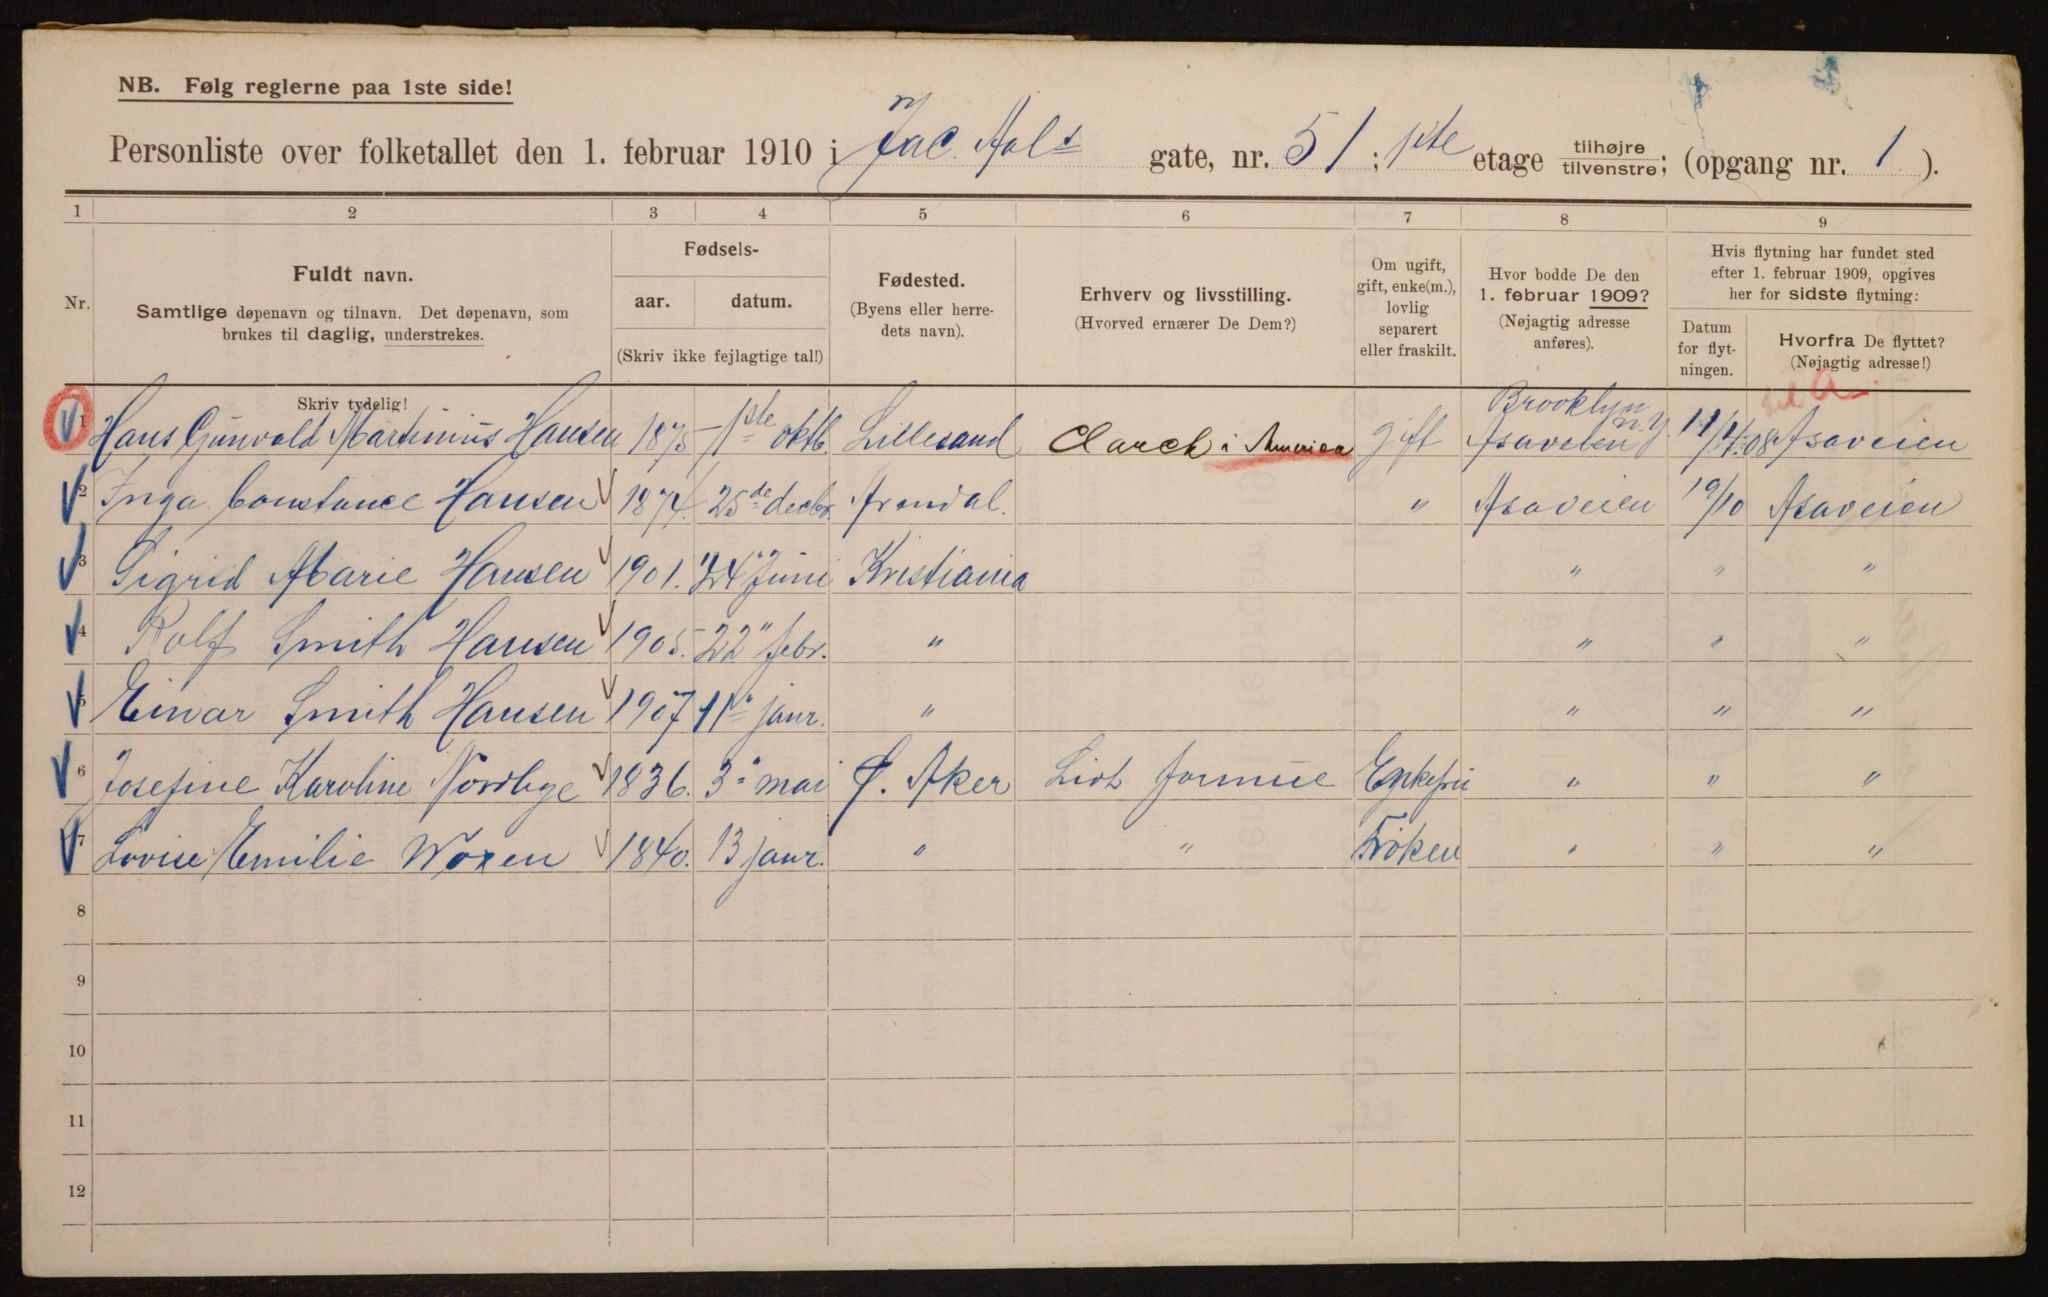 NB. Følg reglerne paa 1ste side!
Personliste over folketallet den 1. februar 1910 i Jac. Aals gate, nr. 51; 1ste etage tilhøjre tilvenstre; (opgang nr. 1 ).
1 2 3 4 5 6 7 8 9
Nr.
Fuldt navn.
Samtlige døpenavn og tilnavn. Det døpenavn, som
brukes til daglig, understrekes.
Skriv tydelig!
Fødsels-
aar. datum.
(Skriv ikke fejlagtige tal!)
Fødested.
(Byens eller herre-
dets navn).
Erhverv og livsstilling.
(Hvorved ernærer De Dem?)
Om ugift,
gift, enke(m.),
lovlig
separert
eller fraskilt.
Hvor bodde De den
1. februar 1909?
(Nøjagtig adresse
anføres).
Hvis flytning har fundet sted
efter 1. februar 1909, opgives
her for sidste flytning:
Datum
for flyt-
ningen.
Hvorfra De flyttet?
(Nøjagtig adresse!)
Brooklyn N.Y.
1 Hans Gunvald Martinius Hansen 1875 1ste oktb. Lillesand Clarck i America gift Asaveien 11/4.08 Asaveien
2 Inga Constance Hansen 1874. 25de decbr. Arendal. " Asaveien 19/10 Asaveien
3 Sigrid Marie Hansen 1901. 24" Juni Kristiania " " "
4 Rolf Smith Hansen 1905. 22" febr. " " " "
5 Einar Smith Hansen 1907 11" janr. " " " "
6 Josefine Karoline Nordbye 1836. 3" mai Ø. Aker Lidt formue Enkefru " " "
7 Lovise Emilie Woxen 1840. 13 janr. " " Frøken " " "
8
9
10
11
12